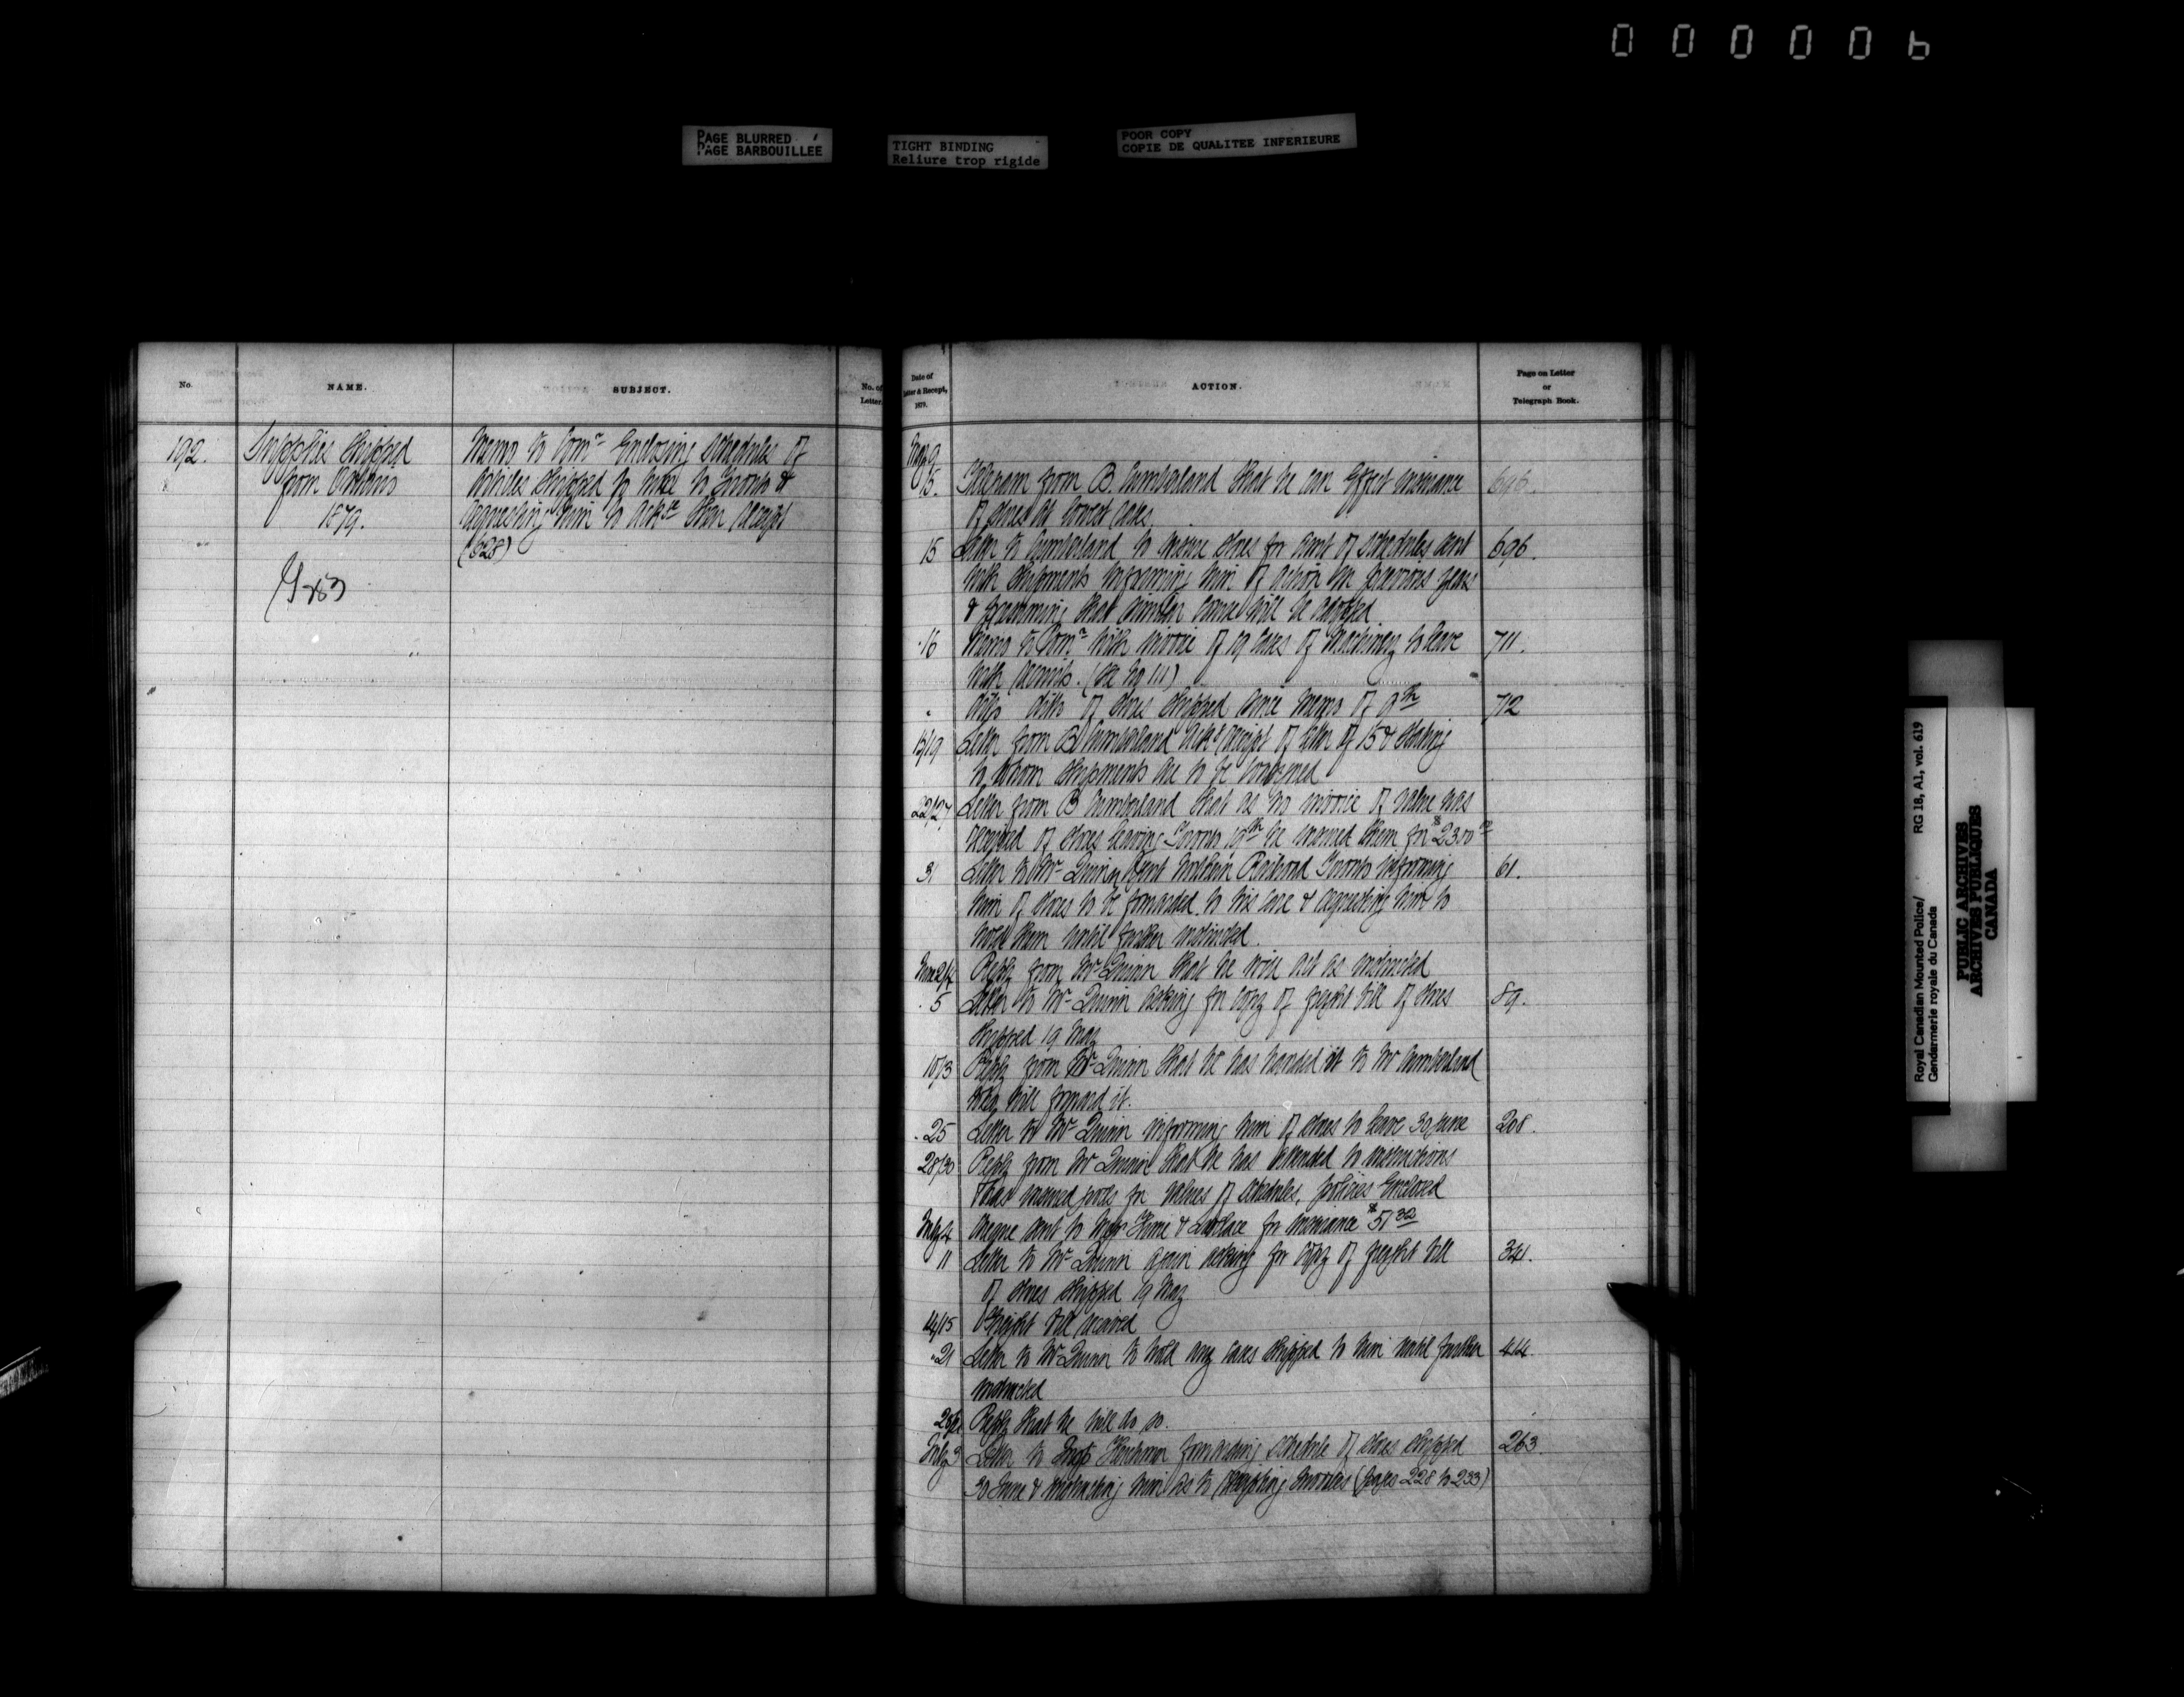 000006
PAGE BLURRED
PAGE BARBOUILLEE
TIGHT BINDING
Reliure trop rigide
POOR COPY
COPIE DE QUALITEE INFERIEURE
No.
NAME.
SUBJECT.
No. of
Letter.
192.
Supplies Shipped
from Ottawa
1879.
Memo to Comr Enclosing Schedules of
articles shipped to Toronto &
requesting him to ackce their receipt
(628)
Date of
Letter & Receipt,
1879.
ACTION.
Page on Letter
or
Telegraph Book.
May 9
15. Telegram from B. Cumberland that he can effect insurance 696.
of stores at lowest rates.
15 Letter to Cumberland to insure stores for amt of schedules sent 696.
with shipments informing him of action in previous years
& presuming that similar course will be adopted
16 Memo to Comr with invoice of 19 cases of Machinery to leave 711.
with recruits. (See No 111)
" ditto ditto of stores shipped since memo of 9th 712
15/19 Letter from B Cumberland ackg receipt of letter of 15 & stating
to whom shipments are to be consigned
22/27 Letter from B Cumberland that as no invoice of value was
received of stores leaving Toronto 19th he insured them for $2300
31 Letter to Mr Quinn Agent Northern Railroad Toronto informing 61.
him of stores to be forwarded to his care & requesting him to
hold them until further instructed.
June 2/4 Reply from Mr Quinn that he will act as instructed
5 Letter to Mr Quinn asking for copy of freight bill of stores 89.
shipped 19 May
10/13 Reply from Mr Quinn that he has handed it to Mr Cumberland
who will forward it.
25 Letter to Mr Quinn informing him of stores to leave 30 June 208.
28/30 Reply from Mr Quinn that he has attended to instructions
& has insured goods for values of schedules, policies enclosed
July 4 Cheque sent to Hime & for insurance $51.32
11 Letter to Mr Quinn again asking for copy of freight bill 341.
of stores shipped 19 May
14/15 Freight bill received
21 Letter to Mr Quinn to hold any cases shipped to him until further 414.
instructed
Reply that he will do so.
July 3 Letter to Insp forwarding schedule of stores shipped 263.
30 June & instructing him as to receipting invoices (pages 228 to 233)
Royal Canadian Mounted Police/ RG 18, A1, vol. 619
Gendarmerie royale du Canada
PUBLIC ARCHIVES
ARCHIVES PUBLIQUES
CANADA